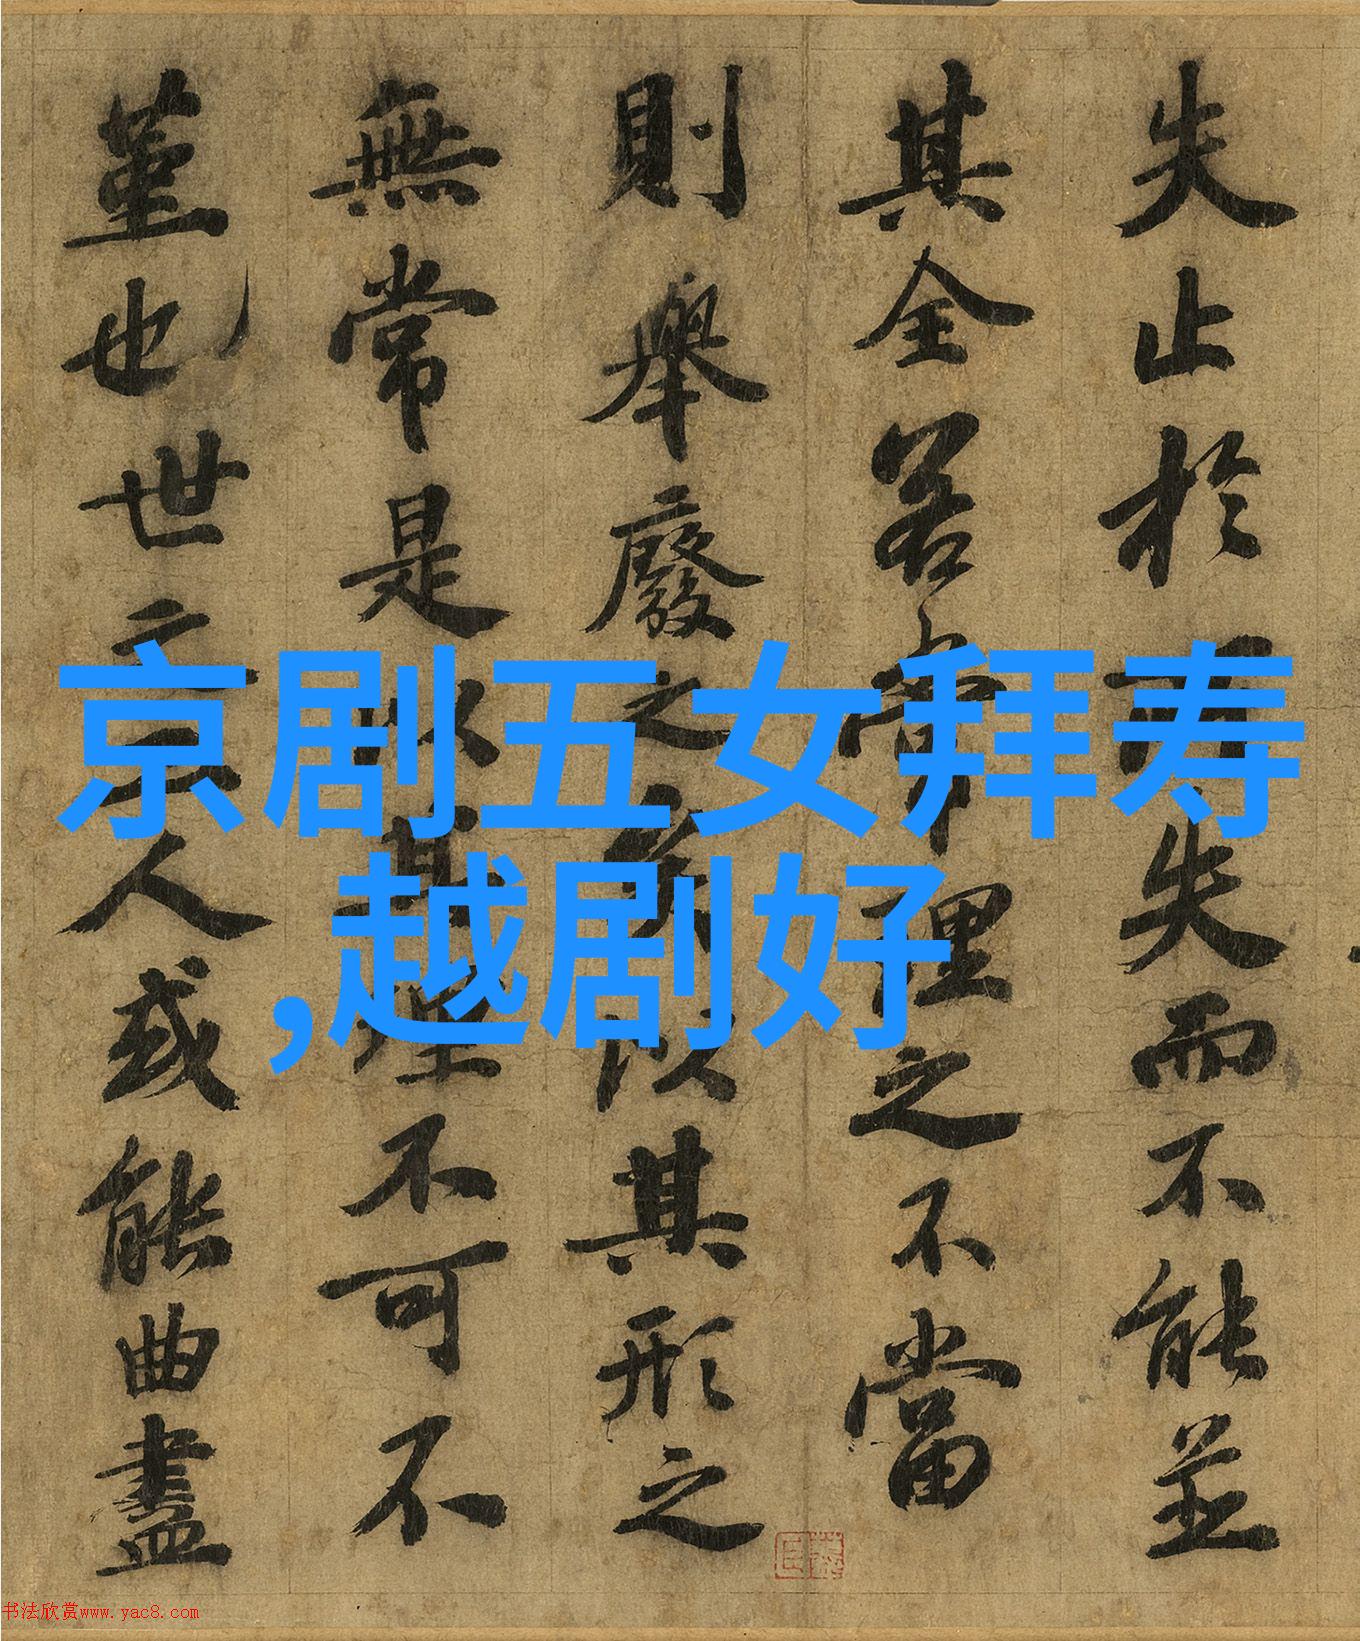 失止於所失而不能並
其全若常理之不當
則舉廢之矣以其形之
無常是以其理不可不
堇也世之工人或能曲盡
京剧五女拜寿
,越剧好
书法欣赏www.yac8.com